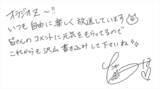 オラジオエ〜!!
いつも自由に楽しく放送しています
皆さんのコメントに元気をもらってるので
これからも沢山書き込みして下さいね♪